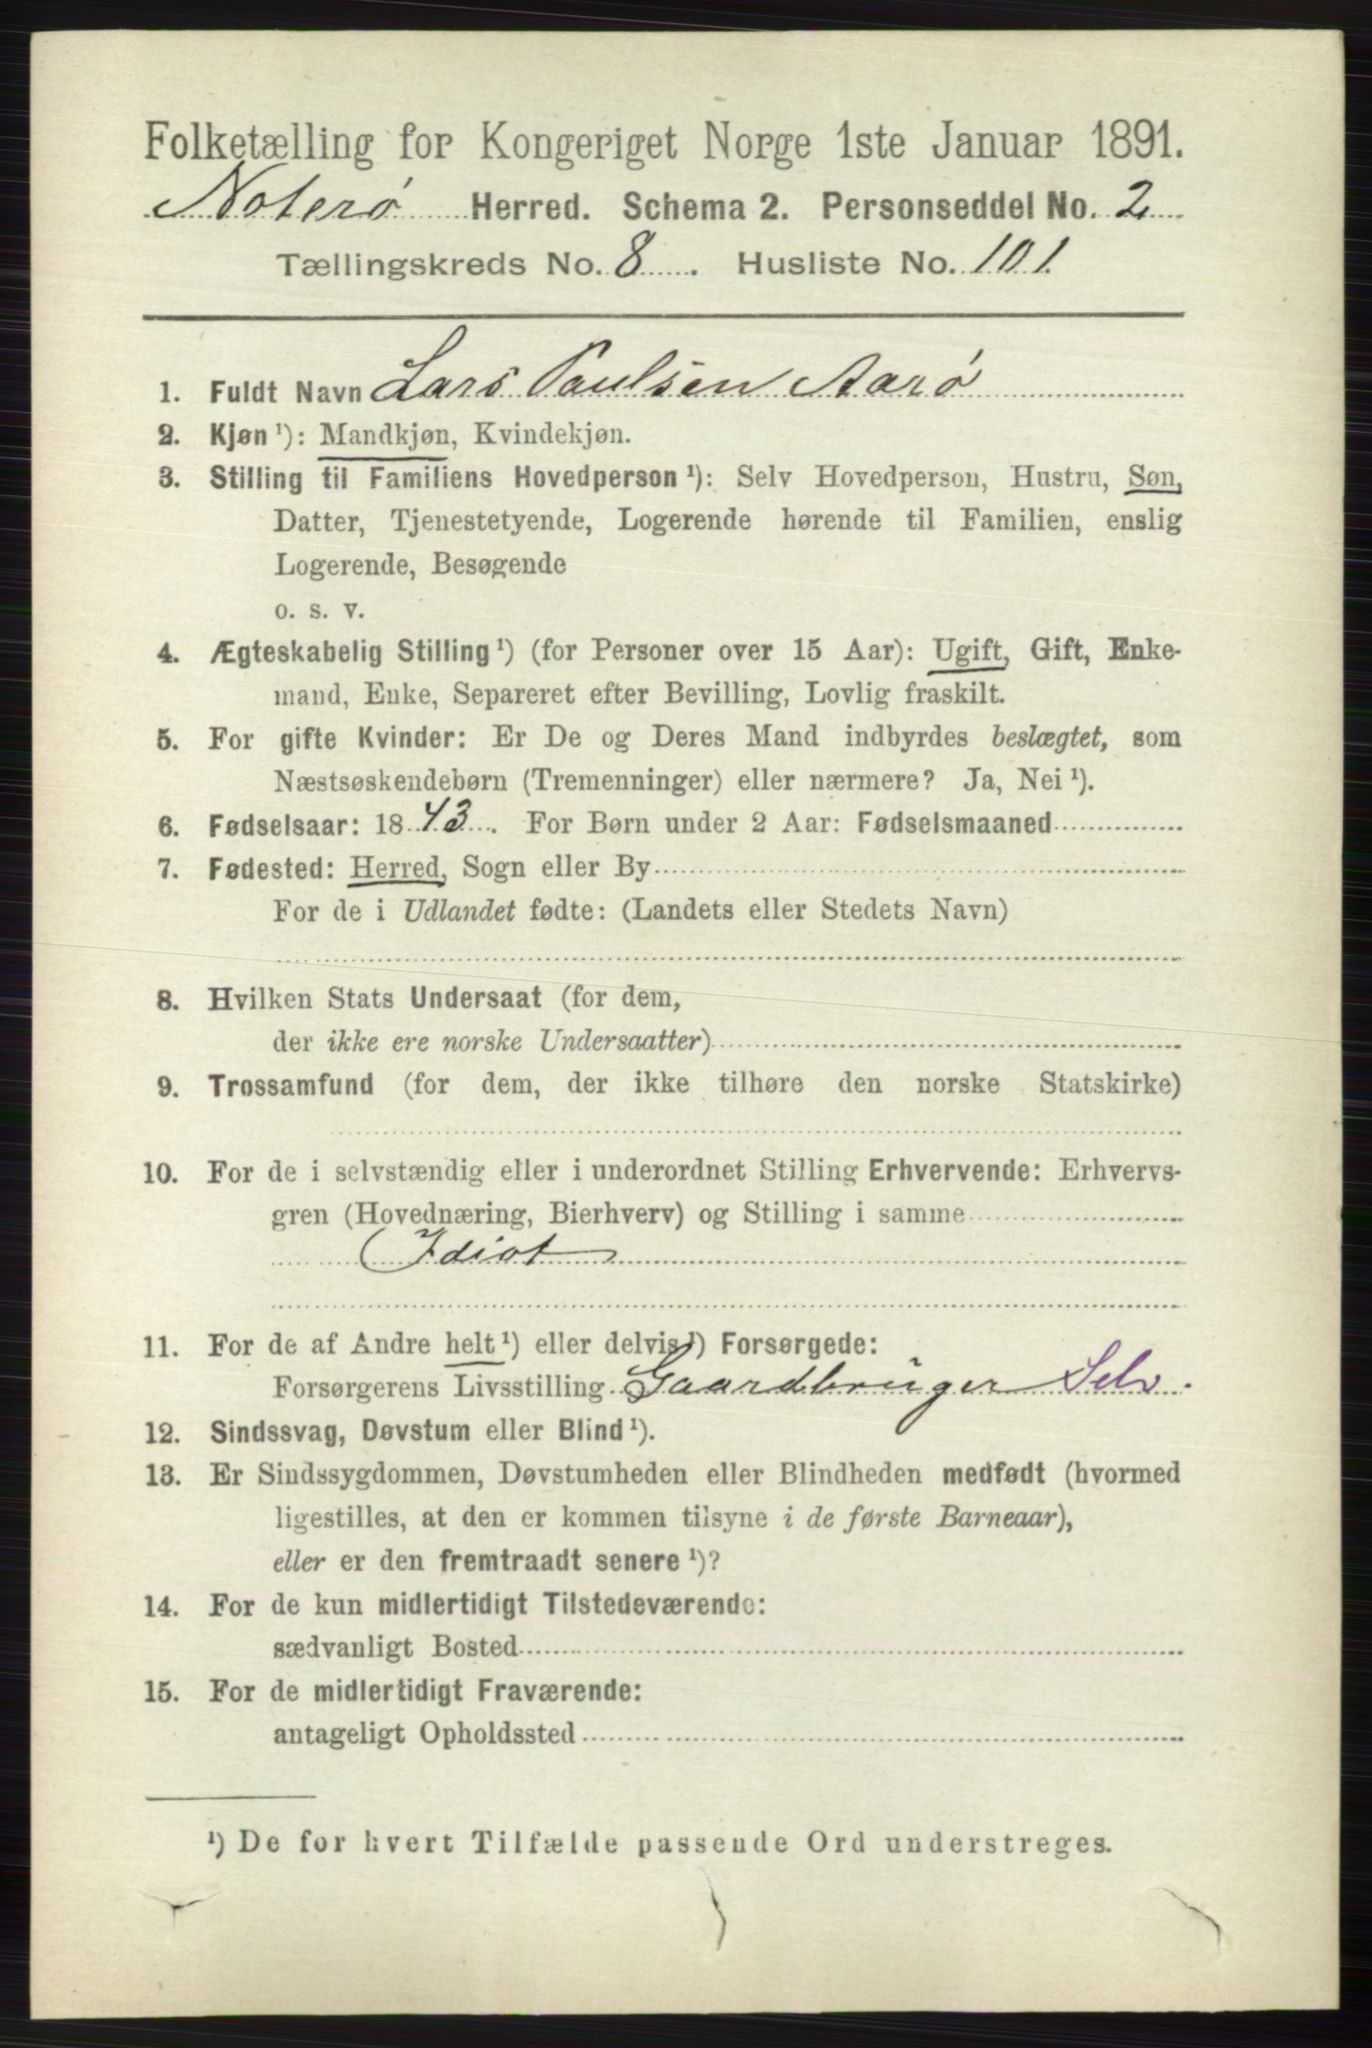 Folketælling for Kongeriget Norge 1ste Januar 1891.
Noterø Herred. Schema 2. Personseddel No. 2
Tællingskreds No. 8. Husliste No. 101.
1. Fuldt Navn Lars Paulsen Aarø
2. Kjøn ¹): Mandkjøn, Kvindekjøn.
3. Stilling til Familiens Hovedperson ¹): Selv Hovedperson, Hustru, Søn,
Datter, Tjenestetyende, Logerende hørende til Familien, enslig
Logerende, Besøgende
o. s. v.
4. Ægteskabelig Stilling ¹) (for Personer over 15 Aar): Ugift, Gift, Enke-
mand, Enke, Separeret efter Bevilling, Lovlig fraskilt.
5. For gifte Kvinder: Er De og Deres Mand indbyrdes beslægtet, som
Næstsøskendebørn (Tremenninger) eller nærmere? Ja, Nei ¹).
6. Fødselsaar: 1843. For Børn under 2 Aar: Fødselsmaaned
7. Fødested: Herred, Sogn eller By
For de i Udlandet fødte: (Landets eller Stedets Navn)
8. Hvilken Stats Undersaat (for dem,
der ikke ere norske Undersaatter)
9. Trossamfund (for dem, der ikke tilhøre den norske Statskirke)
10. For de i selvstændig eller i underordnet Stilling Erhvervende: Erhvervs-
gren (Hovednæring, Bierhverv) og Stilling i samme
(Idiot
11. For de af Andre helt ¹) eller delvis ¹) Forsørgede:
Forsørgerens Livsstilling Gaardbruger Selv.
12. Sindssvag, Døvstum eller Blind ¹).
13. Er Sindssygdommen, Døvstumheden eller Blindheden medfødt (hvormed
ligestilles, at den er kommen tilsyne i de første Barneaar),
eller er den fremtraadt senere ¹)?
14. For de kun midlertidigt Tilstedeværende:
sædvanligt Bosted
15. For de midlertidigt Fraværende:
antageligt Opholdssted
¹) De for hvert Tilfælde passende Ord understreges.